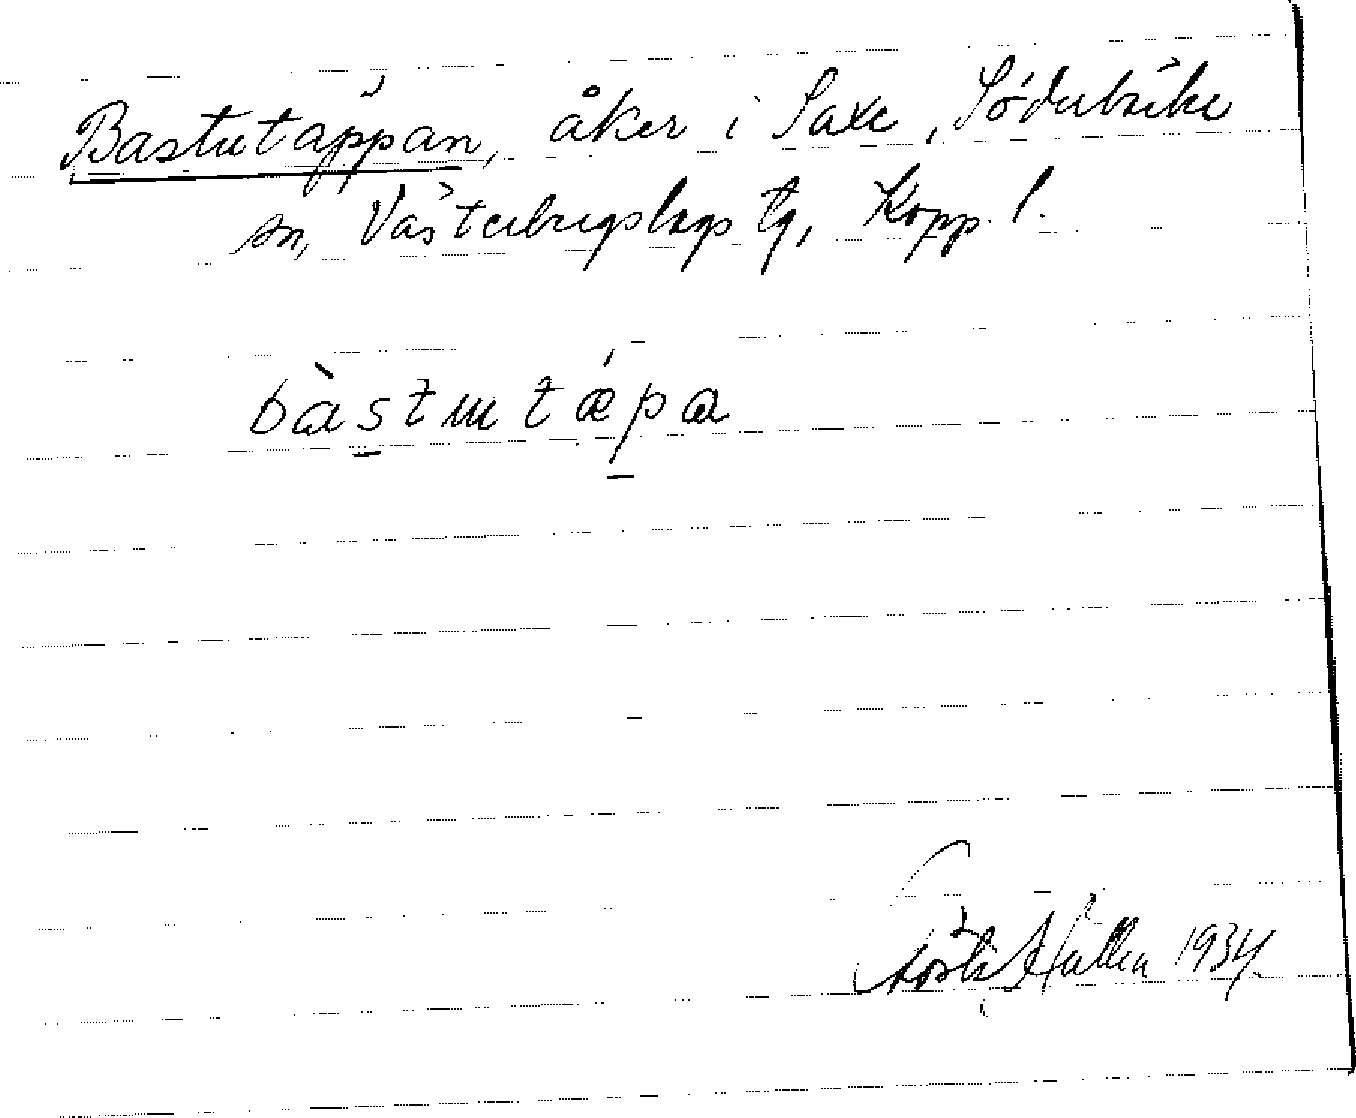 Bastutäppan, åker i Saxe, Söderbärke
sn, Västerbergslags tg, Kopp. l.
bàstɯtǽpa
Gösta Hallén 1934.